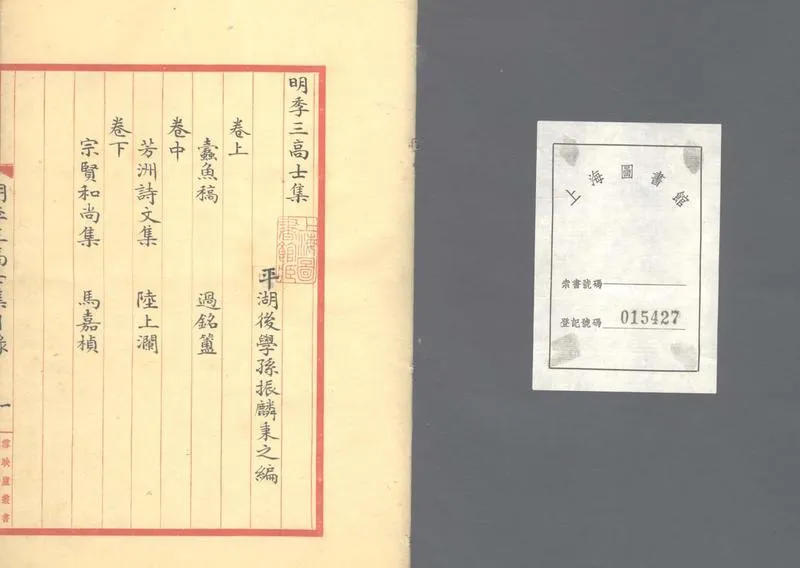 明季三高士集
平湖後學孫振麟秉之編
卷上
蠹魚稿 過銘簠
卷中
芳洲詩文集 陸上瀾
卷下
宗賢和尚集 馬嘉楨
明季三高士集目錄
一
雪映廬叢書
上海圖書館藏
上海圖書館
索書號碼
登記號碼 015427